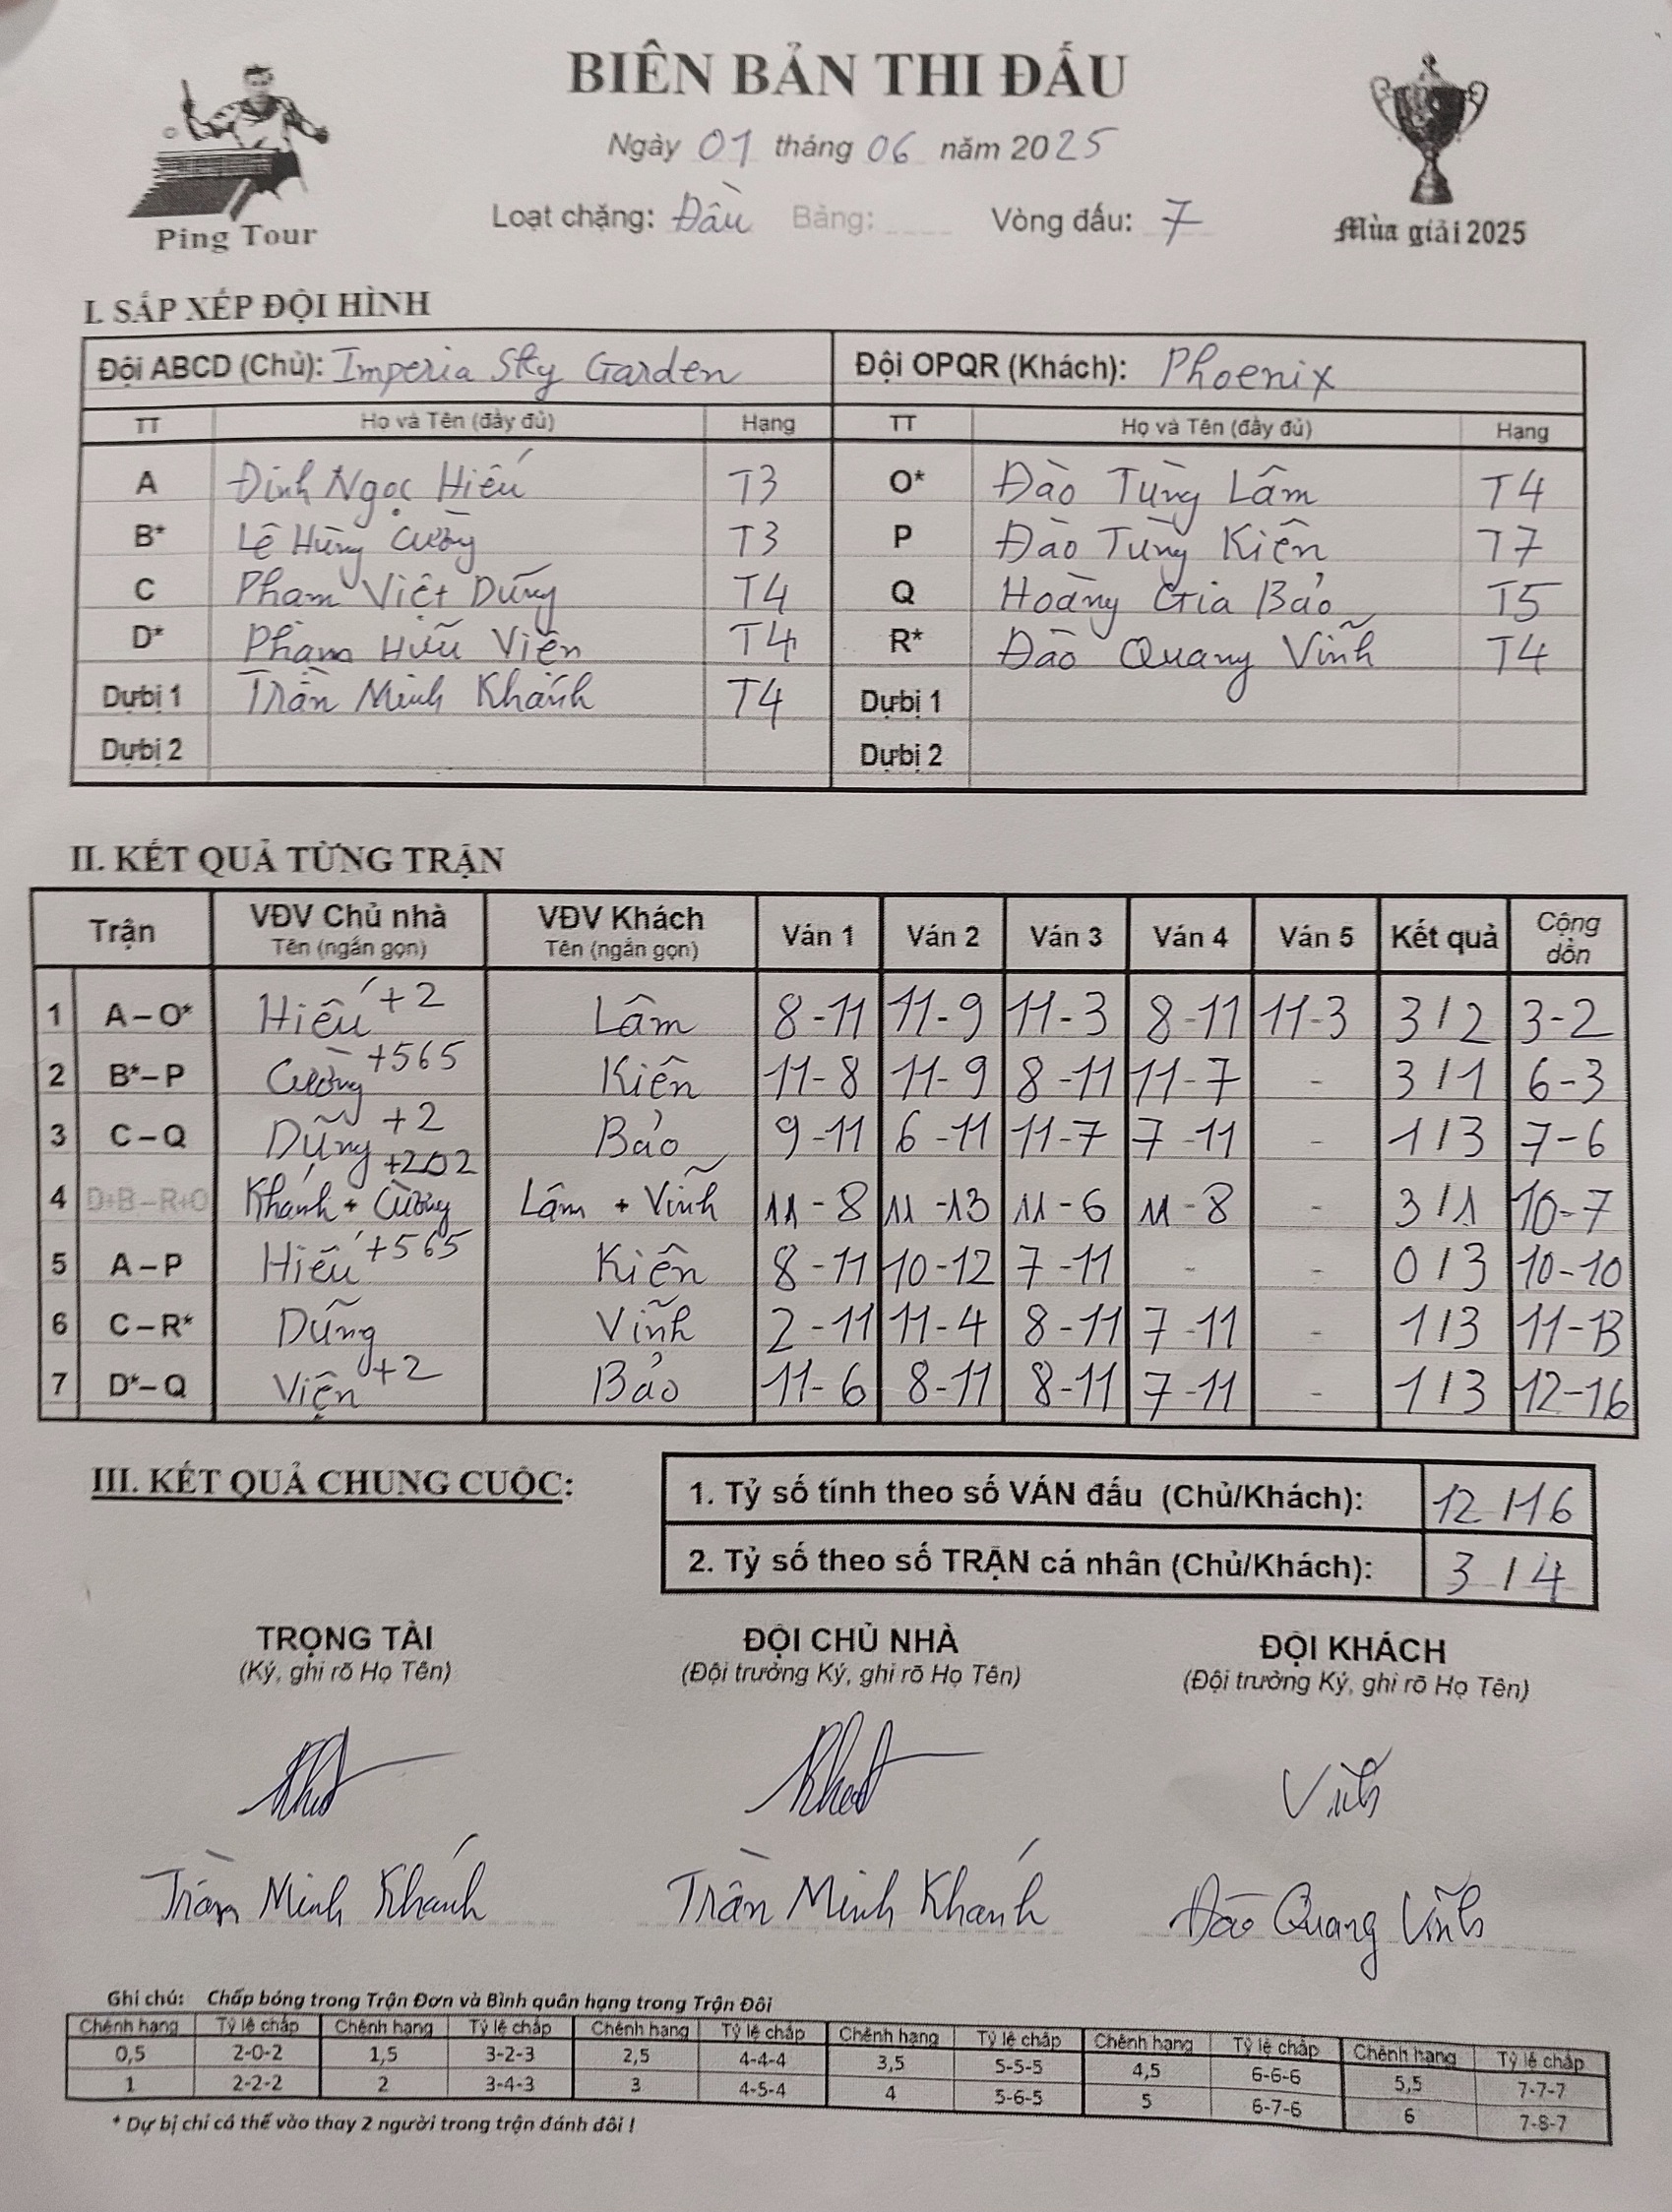 BIÊN BẢN THI ĐẤU
Ngày 01 tháng 06 năm 2025
Loạt chặng: Đầu Bảng: Vòng đấu: 7
Ping Tour
Mùa giải 2025
I. SẮP XẾP ĐỘI HÌNH
Đội ABCD (Chủ): Imperia Sky Garden Đội OPQR (Khách): Phoenix
TT Họ và Tên (đầy đủ) Hạng TT Họ và Tên (đầy đủ) Hạng
A Đinh Ngọc Hiếu T3 O* Đào Tùng Lâm T4
B* Lê Hùng Cường T3 P Đào Tùng Kiên T7
C Phạm Việt Dũng T4 Q Hoàng Gia Bảo T5
D* Phạm Hữu Viện T4 R* Đào Quang Vĩnh T4
Dự bị 1 Trần Minh Khánh T4 Dự bị 1
Dự bị 2 Dự bị 2
II. KẾT QUẢ TỪNG TRẬN
Trận VĐV Chủ nhà VĐV Khách Ván 1 Ván 2 Ván 3 Ván 4 Ván 5 Kết quả Cộng dồn
Tên (ngắn gọn) Tên (ngắn gọn)
1 A – O* Hiếu +2 Lâm 8-11 11-9 11-3 8-11 11-3 3/2 3-2
2 B* – P Cường +565 Kiên 11-8 11-9 8-11 11-7 - 3/1 6-3
3 C – Q Dũng +2 Bảo 9-11 6-11 11-7 7-11 - 1/3 7-6
4 D+B – R+O Khánh + Cường +202 Lâm + Vĩnh 11-8 11-13 11-6 11-8 - 3/1 10-7
5 A – P Hiếu +565 Kiên 8-11 10-12 7-11 - - 0/3 10-10
6 C – R* Dũng Vĩnh 2-11 11-4 8-11 7-11 - 1/3 11-13
7 D* – Q Viện +2 Bảo 11-6 8-11 8-11 7-11 - 1/3 12-16
III. KẾT QUẢ CHUNG CUỘC:
1. Tỷ số tính theo số VÁN đấu (Chủ/Khách): 12/16
2. Tỷ số theo số TRẬN cá nhân (Chủ/Khách): 3/4
TRỌNG TÀI ĐỘI CHỦ NHÀ ĐỘI KHÁCH
(Ký, ghi rõ Họ Tên) (Đội trưởng Ký, ghi rõ Họ Tên) (Đội trưởng Ký, ghi rõ Họ Tên)
Vĩnh
Trần Minh Khánh Trần Minh Khánh Đào Quang Vĩnh
Ghi chú: Chấp bóng trong Trận Đơn và Bình quân hạng trong Trận Đôi
Chênh hạng Tỷ lệ chấp Chênh hạng Tỷ lệ chấp Chênh hạng Tỷ lệ chấp Chênh hạng Tỷ lệ chấp Chênh hạng Tỷ lệ chấp Chênh hạng Tỷ lệ chấp
0,5 2-0-2 1,5 3-2-3 2,5 4-4-4 3,5 5-5-5 4,5 6-6-6 5,5 7-7-7
1 2-2-2 2 3-4-3 3 4-5-4 4 5-6-5 5 6-7-6 6 7-8-7
* Dự bị chỉ có thể vào thay 2 người trong trận đánh đôi !